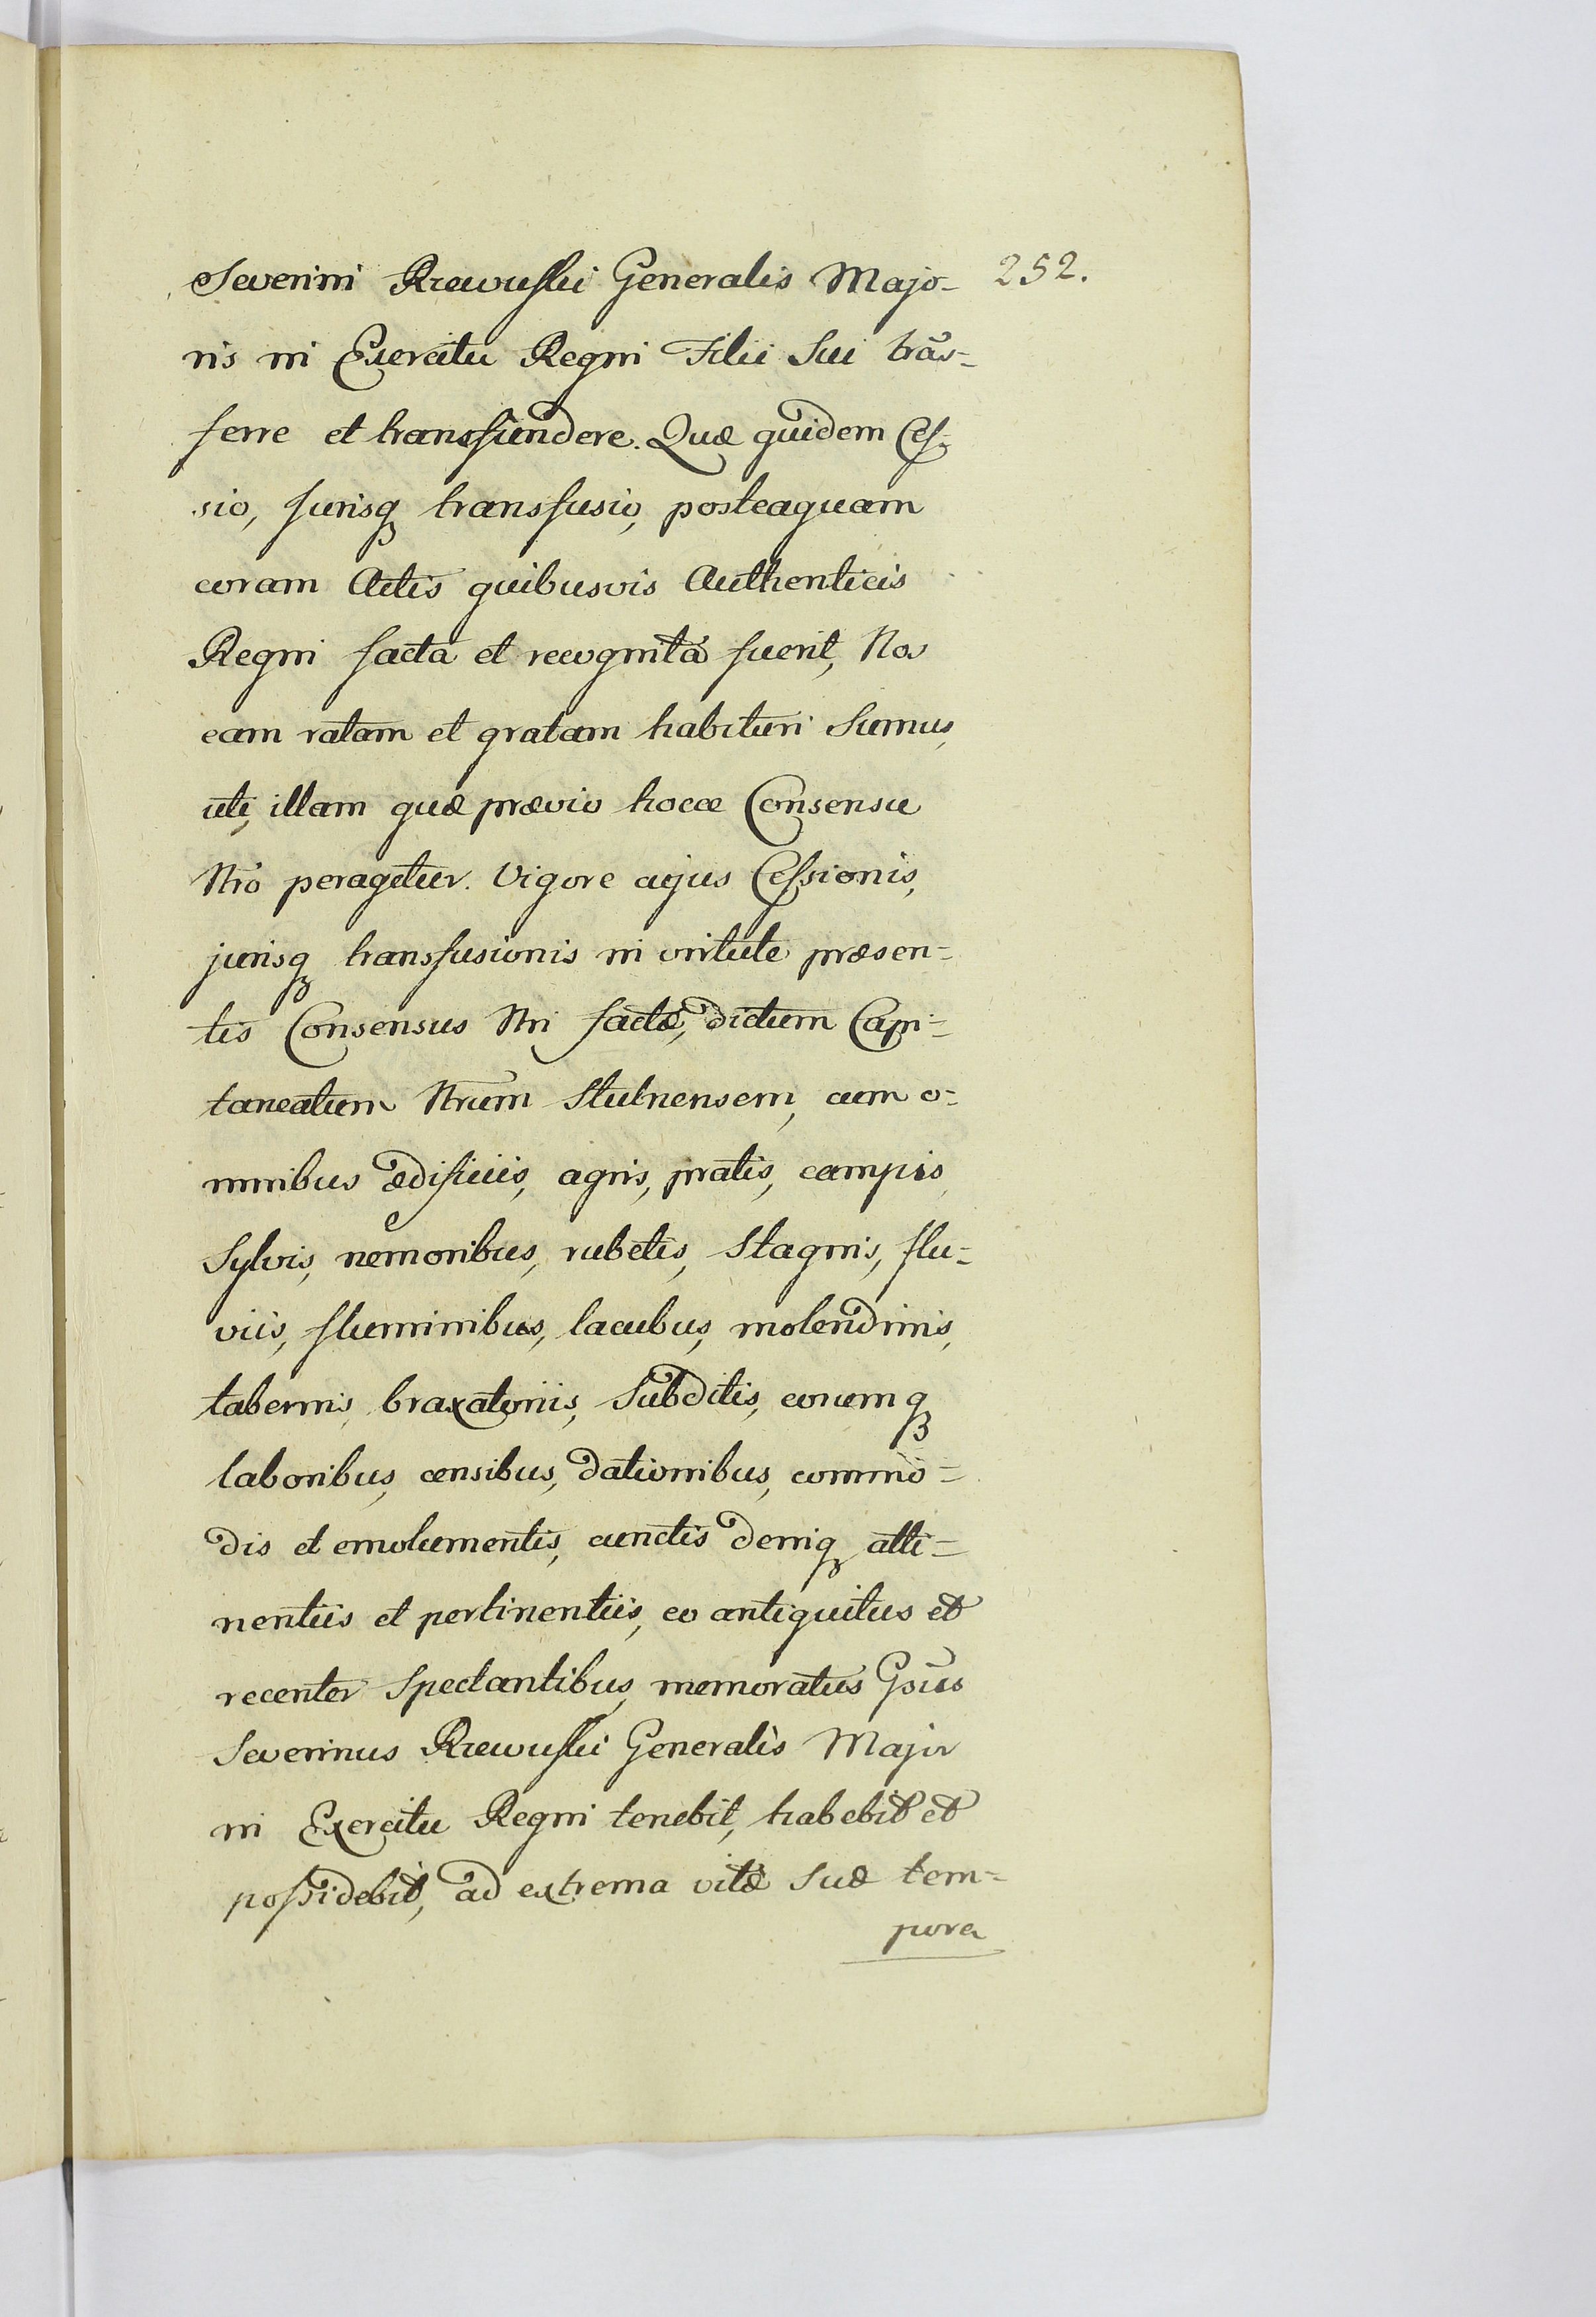 Severini Rzewuski Generalis Majo- 252.
ris in Exercitu Regni Filii Sui trãs-
ferre et transfundere. Quæ quidem Ces-
sio, jurisq₃ transfusio, posteaquam
coram Actis quibusvis Authenticis
Regni facta et recognita fuerit, Nos
eam ratam et gratam habituri Sumus,
uti, illam quæ prævio hocce Consensu
Nrõ peragetur. Vigore cujus Cessionis,
jurisq₃ transfusionis in virtute præsen=
tis Consensus Nri factæ, dictum Capi=
taneatum Nrum Stulnensem, cum o=
mnibus ædificiis, agris, pratis, campis,
Sylvis, nemoribus, rubetis, Stagnis, flu=
viis, fluminibus, lacubus, molendinis,
tabernis, braxatoriis, Subditis, eorumq₃
laboribus, censibus, dationibus, commo=
dis et emolumentis, cunctis deniq₃ atti=
nentiis et pertinentiis, eo antiquitus et
recenter Spectantibus, memoratus Gsus
Severinus Rzewuski Generalis Major
in Exercitu Regni tenebit, habebit et
possidebit, ad extrema vitæ Suæ tem=
pora